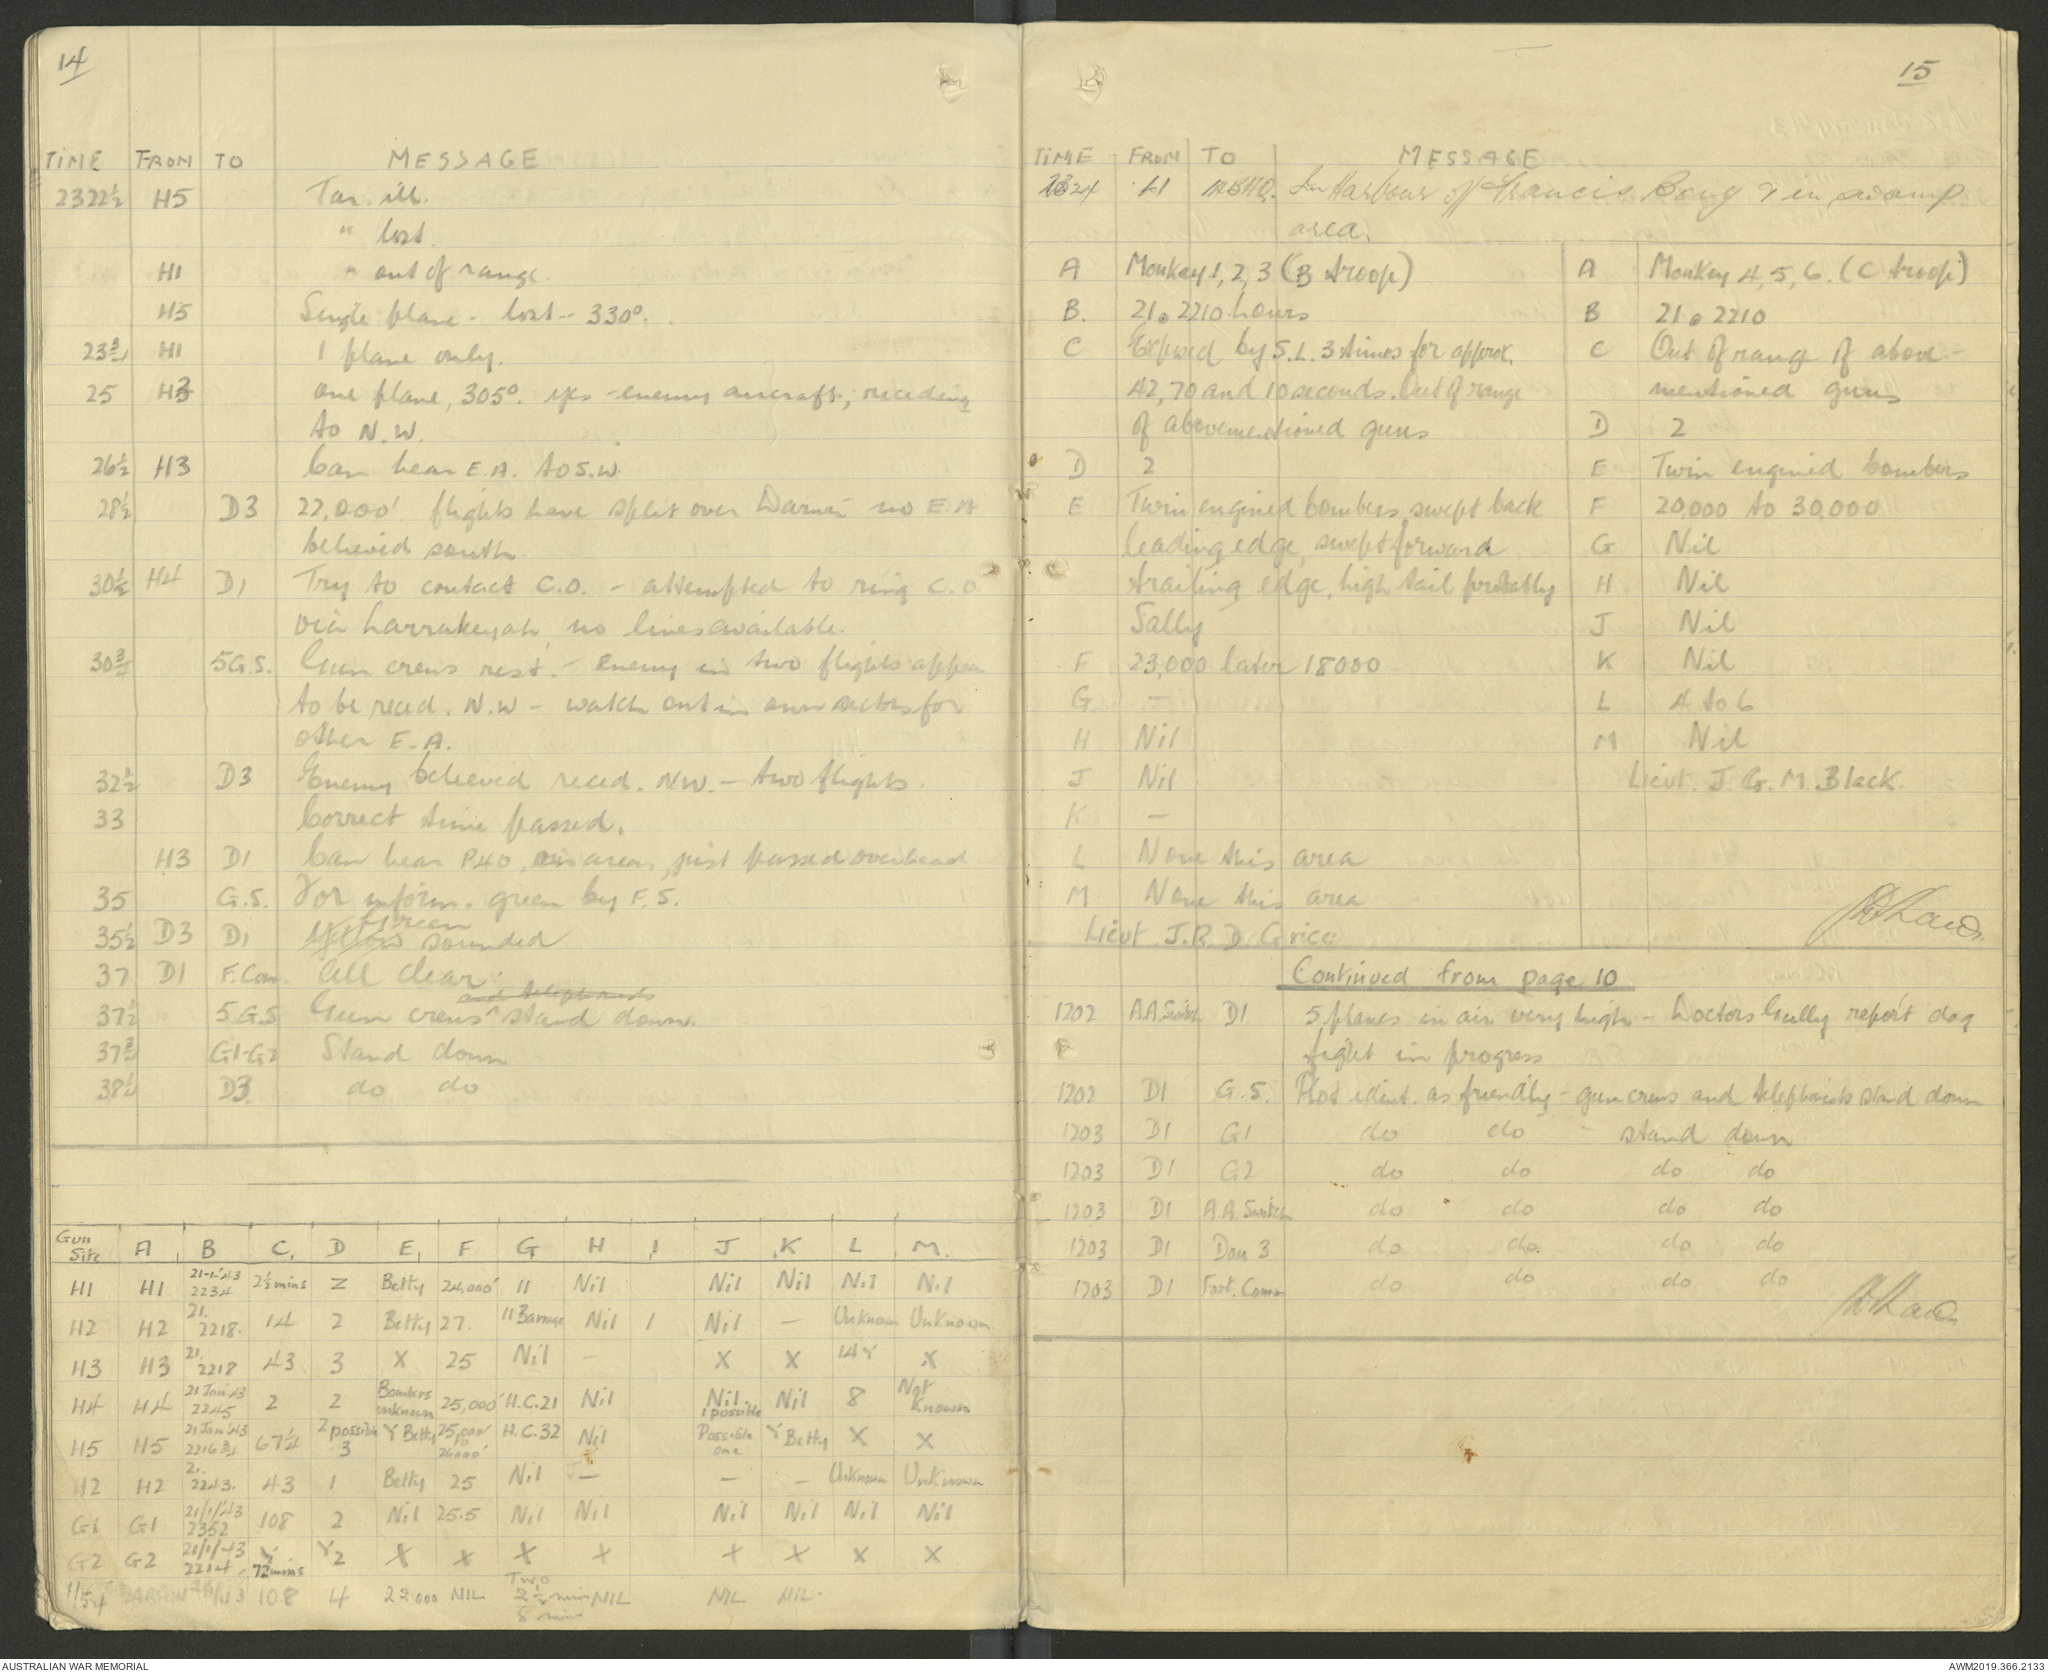 14
TIME FROM TO MESSAGE
2322½ H5 Tar. ill.
" lost.
H1 " out of range.
H5 Single plane - lost - 330°.
23¾ H1 1 plane only.
25 H3 one plane, 305°. - enemy aircraft, receding
to N.W.
26½ H3 Can hear E.A. to S.W.
28½ D3 22,000' flights have split over Darwin no E A
believed south.
30½ H4 D1 Try to contact C.O. - attempted to ring C.O
via Larrakeyah no lines available.
30¾ 5G.S. Gun crews rest. - enemy in two flights appear
to be reced. N.W - watch out in own sectors for
other E.A.
32½ D3 Enemy believed reced. N.W. - two flights.
33 Correct time passed.
H3 D1 Can hear P40, areas, just passed overhead
35 G.S. For inform. green by F.S.
Green
35½ D3 D1 sounded
37 D1 F.Com. All Clear.
and telephonists
37½ 5 G.S Gun crews stand down.
37¾ G1-G2 Stand down
38½ D3. do do
Gun
Site A B C. D E, F G H I J K L M.
H1 H1 21-1-'43 2234 2½ mins 2 Betty 24,000' 11 Nil Nil Nil Nil Nil
H2 H2 21. 2218. 14 2 Betty 27. 11 Barrage Nil 1 Nil — Unknown Unknown
H3 H3 21. 2218 43 3 X 25 Nil — X X 14Y X
H4 H4 21 Jan '43 2245 2 2 Bombers unknown 25,000' H.C.21 Nil Nil 1 possible Nil 8 Not Known
H5 H5 21 Jan '43 2216¾ 67¼ 2 possible 3 Y Betty 25,000' to 26000' H.C.32 Nil Possible one Y Betty X X
H2 H2 21. 2243. 43 1 Betty 25 Nil — — — Unknown Unknown
G1 G1 21/1/43 2352 108 2 Nil 25.5 Nil Nil Nil Nil Nil Nil
G2 G2 21/1/43 2214. Y 72 mins Y2 X X X X X X X X
DARWIN 108 4 22.000 NIL Two 2½ min 8 min NIL NIL NIL.
15
TIME FROM TO MESSAGE
2324 L1 In Harbour off Francis Bay & in swamp
area.
A Monkey 1, 2, 3 (B troop)
B. 21. 2210 hours
C Exposed by S.L. 3 times for approx.
42, 70 and 10 seconds. Out of range
of abovementioned guns
D 2
E Twin engined bombers, swept back
leading edge, swept forward
trailing edge, high tail probably
Sally
F 23,000 later 18000
G —
H Nil
J Nil
K —
L None this area
M None this area
Lieut. J.R.D. Grice
A Monkey 4, 5, 6. (C troop)
B 21. 2210
C Out of range of above-
mentioned guns
D 2
E Twin engined bombers
F 20,000 to 30,000
G Nil
H Nil
J Nil
K Nil
L 4 to 6
M Nil
Lieut. J. G. M. Black.
Continued from page 10
1202 A.A.Switch D1 5 planes in air very high - Doctors Gully report dog
fight in progress
1202 D1 G.S. Plot ident. as friendly - gun crews and telephonists stand down
1203 D1 G1 do do - stand down
1203 D1 G2 do do do do
1203 D1 A.A. Switch do do do do
1203 D1 Don 3 do do. do do
1203 D1 Fort. Comm do do do do
AUSTRALIAN WAR MEMORIAL
AWM2019.366.2133